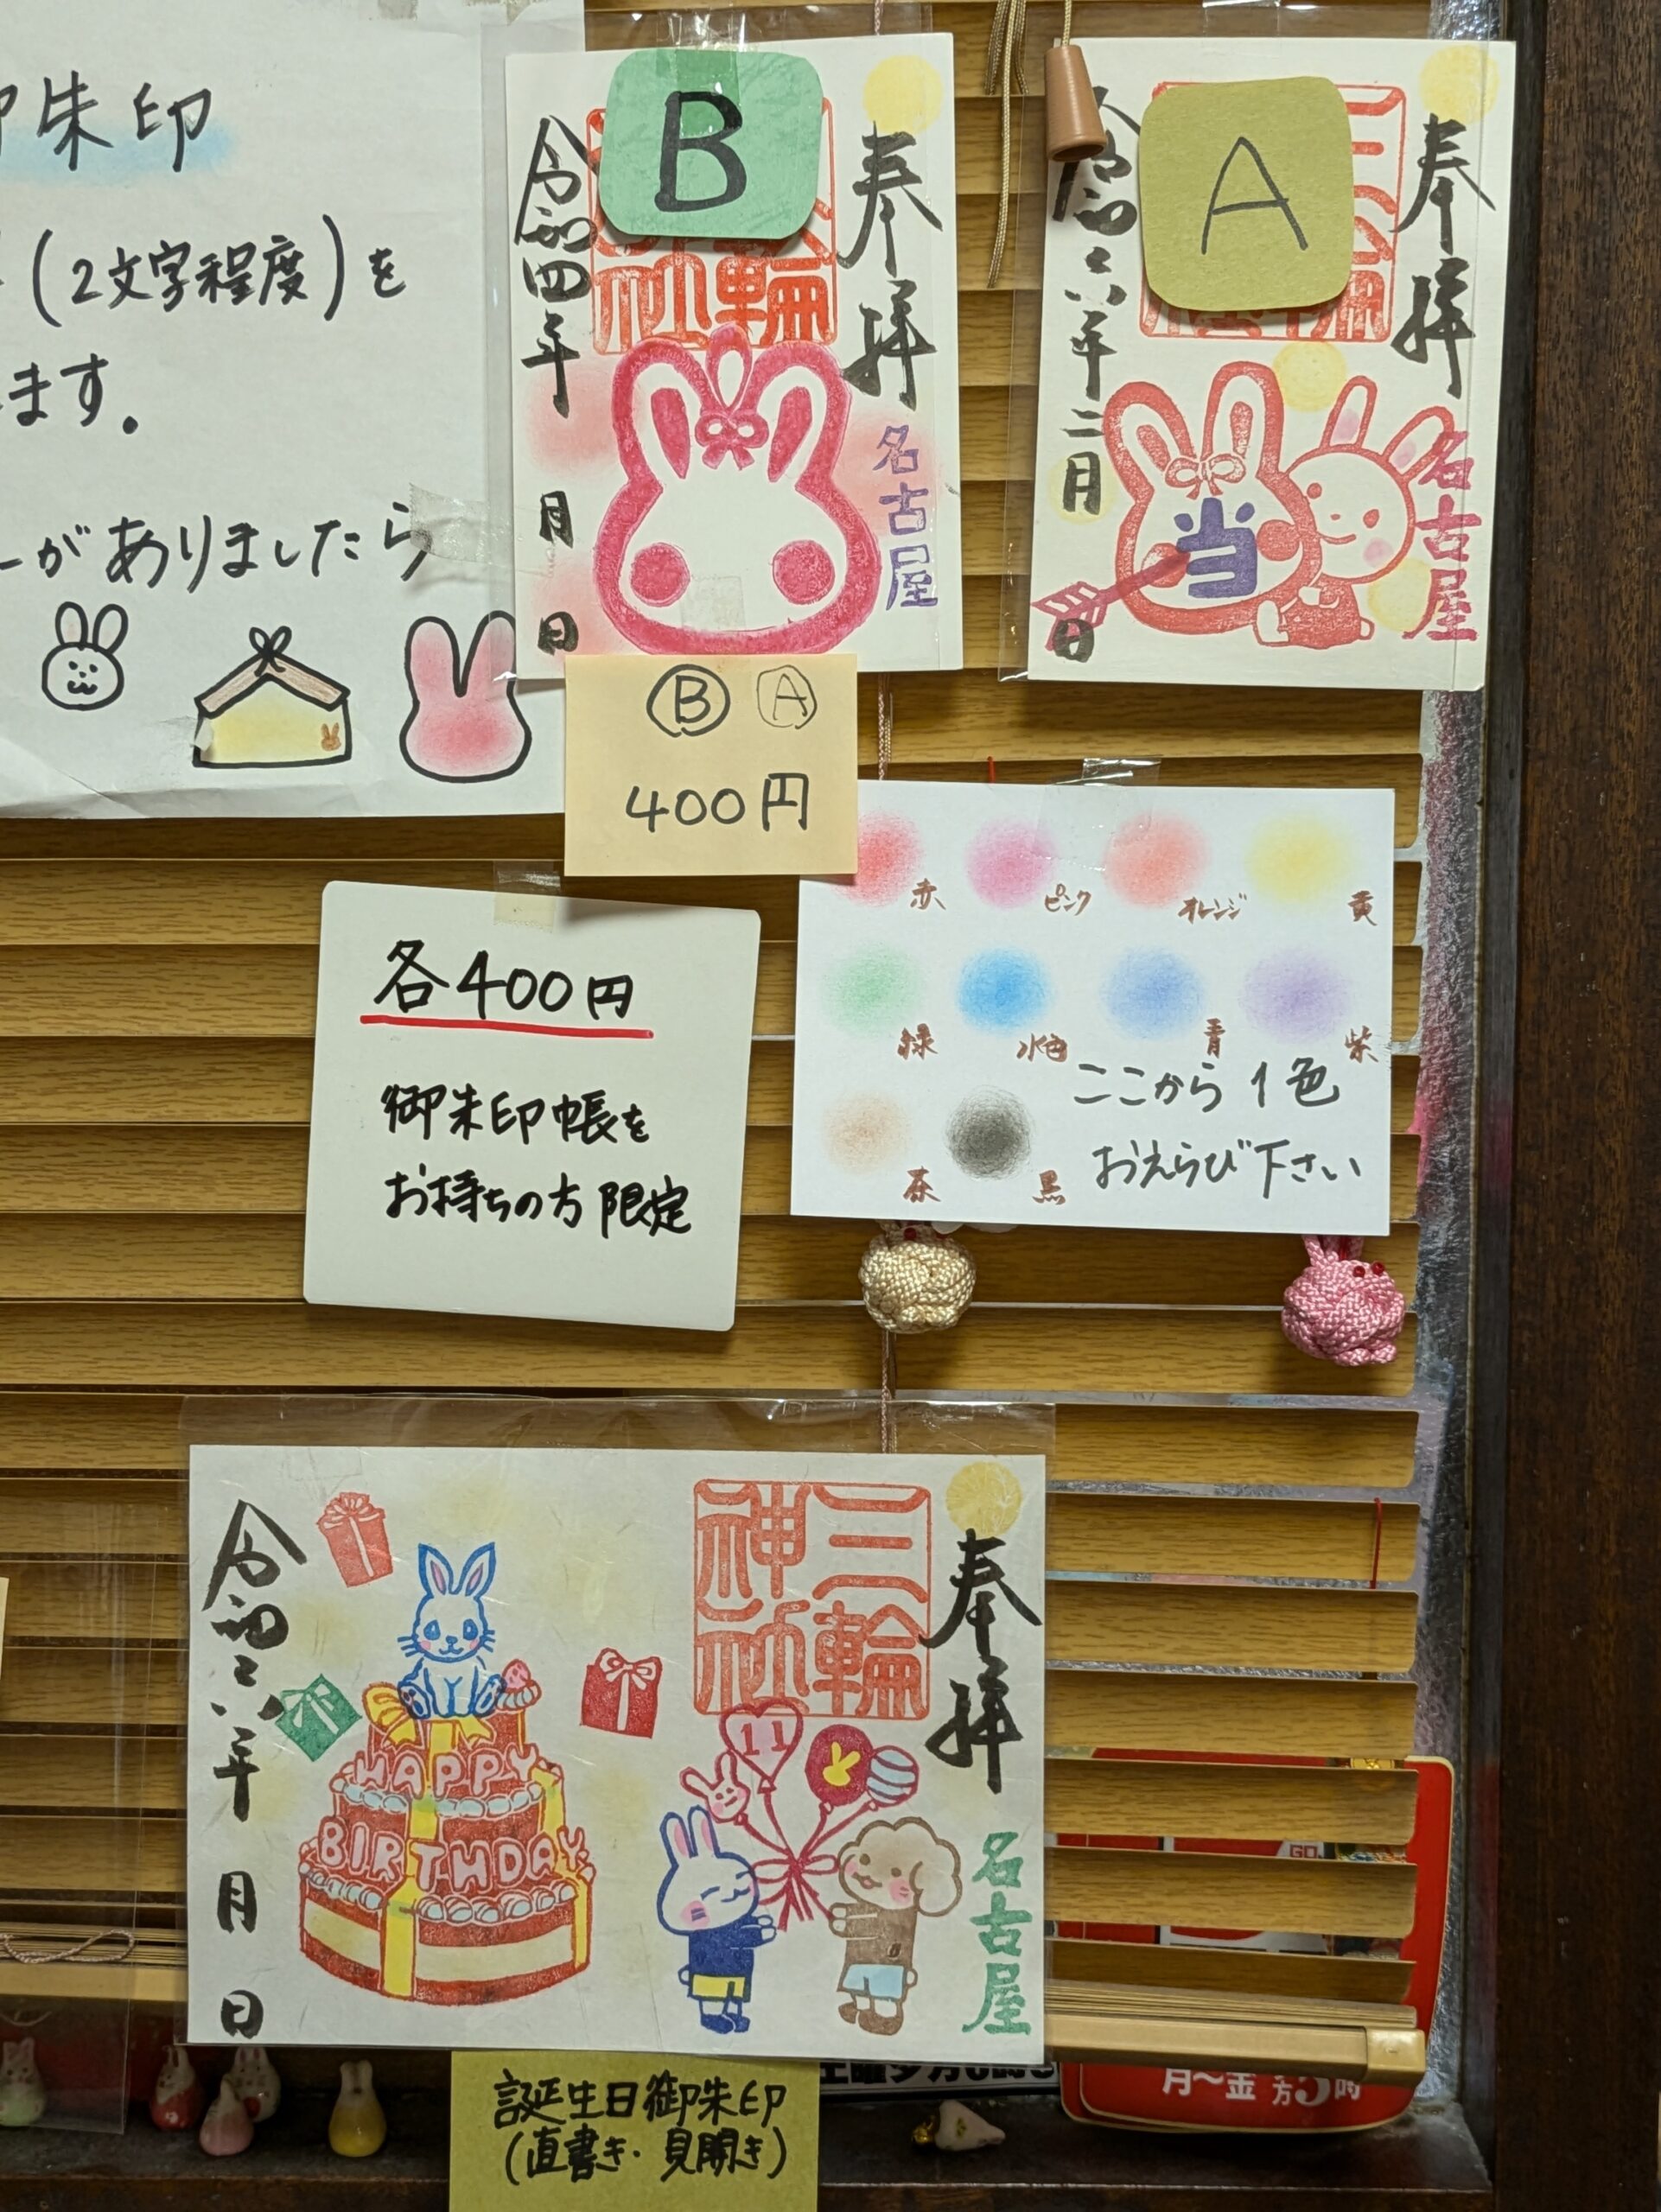 朱印
(2文字程度)を
ます。
がありましたら
B
奉拝
輪
社
令和四年 月 日
名古屋
A
奉拝
令和六年二月 日
当
名古屋
Ⓑ Ⓐ
400円
赤 ピンク オレンジ 黄
緑 水色 青 紫
茶 黒
ここから1色
おえらび下さい
各400円
御朱印帳を
お持ちの方限定
奉拝
三輪
神社
名古屋
11
HAPPY
BIRTHDAY
令和六年 月 日
誕生日御朱印
(直書き・見開き)
GO
月〜金